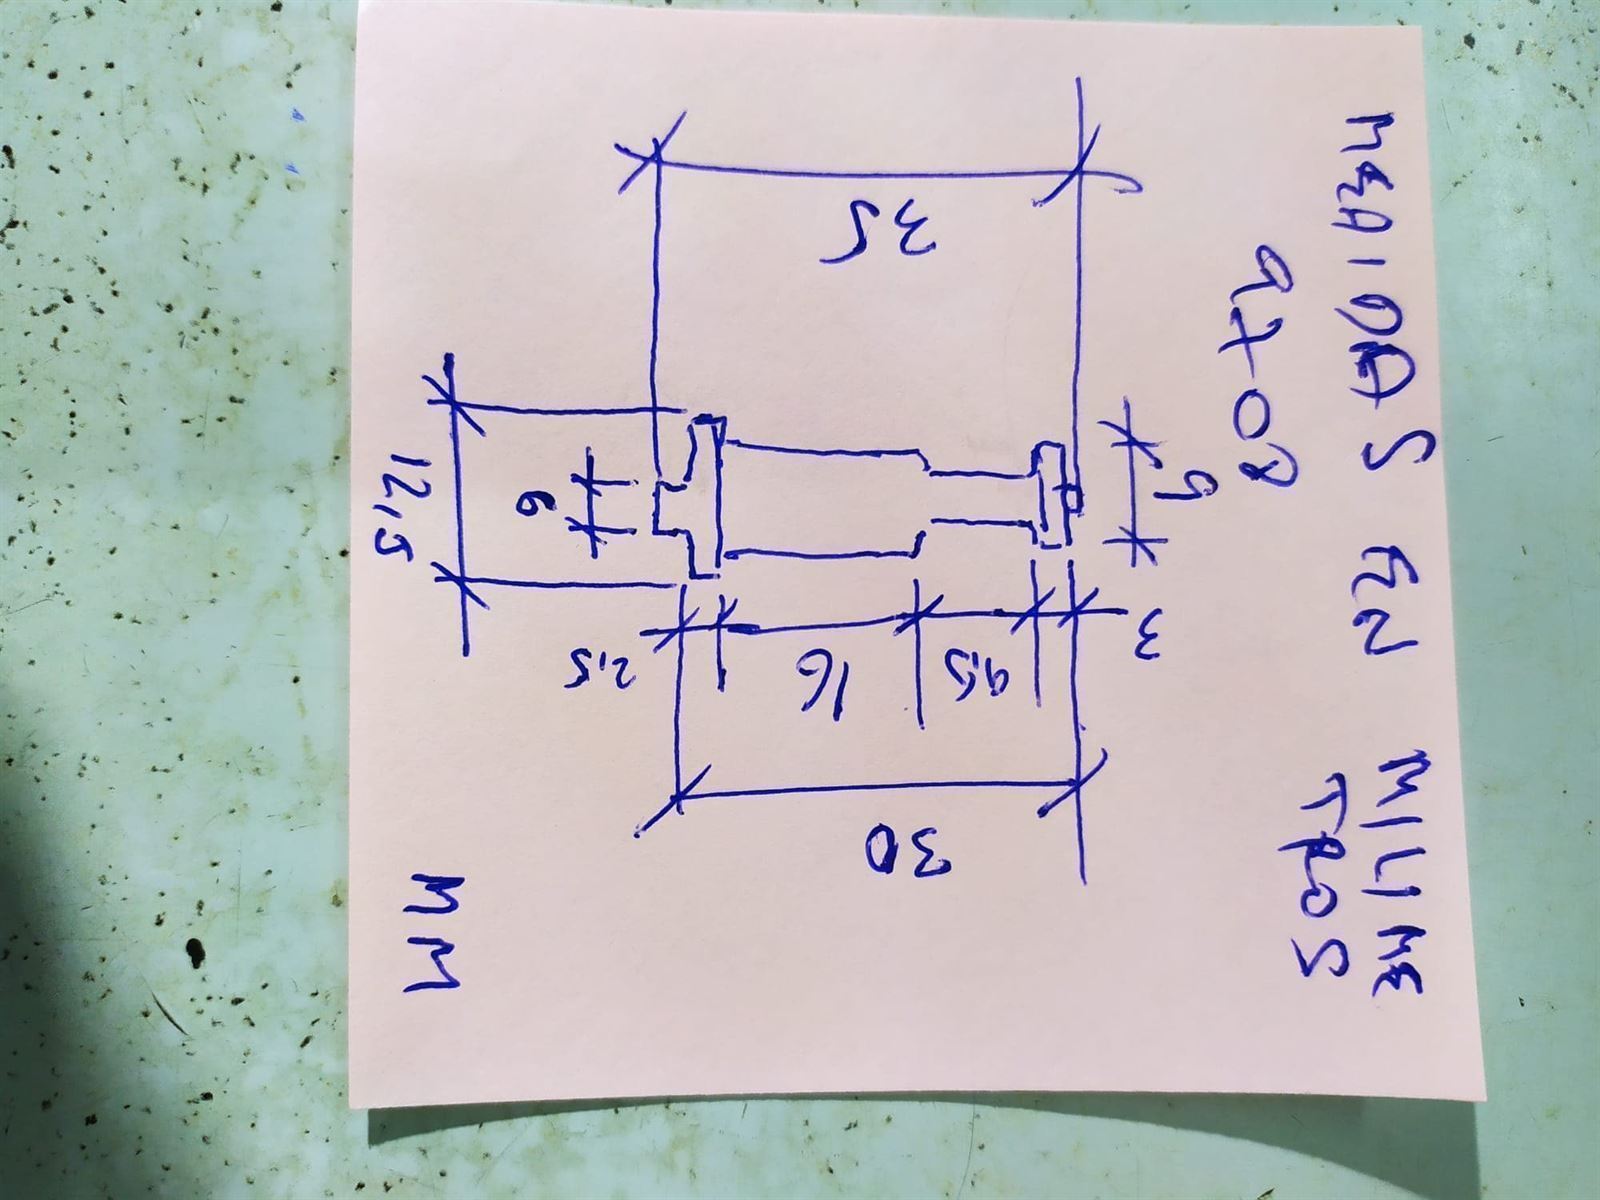 MEDIDAS EN MILIME
TROS
9
3
35
9,5
30
16
2,5
6
12,5
MM